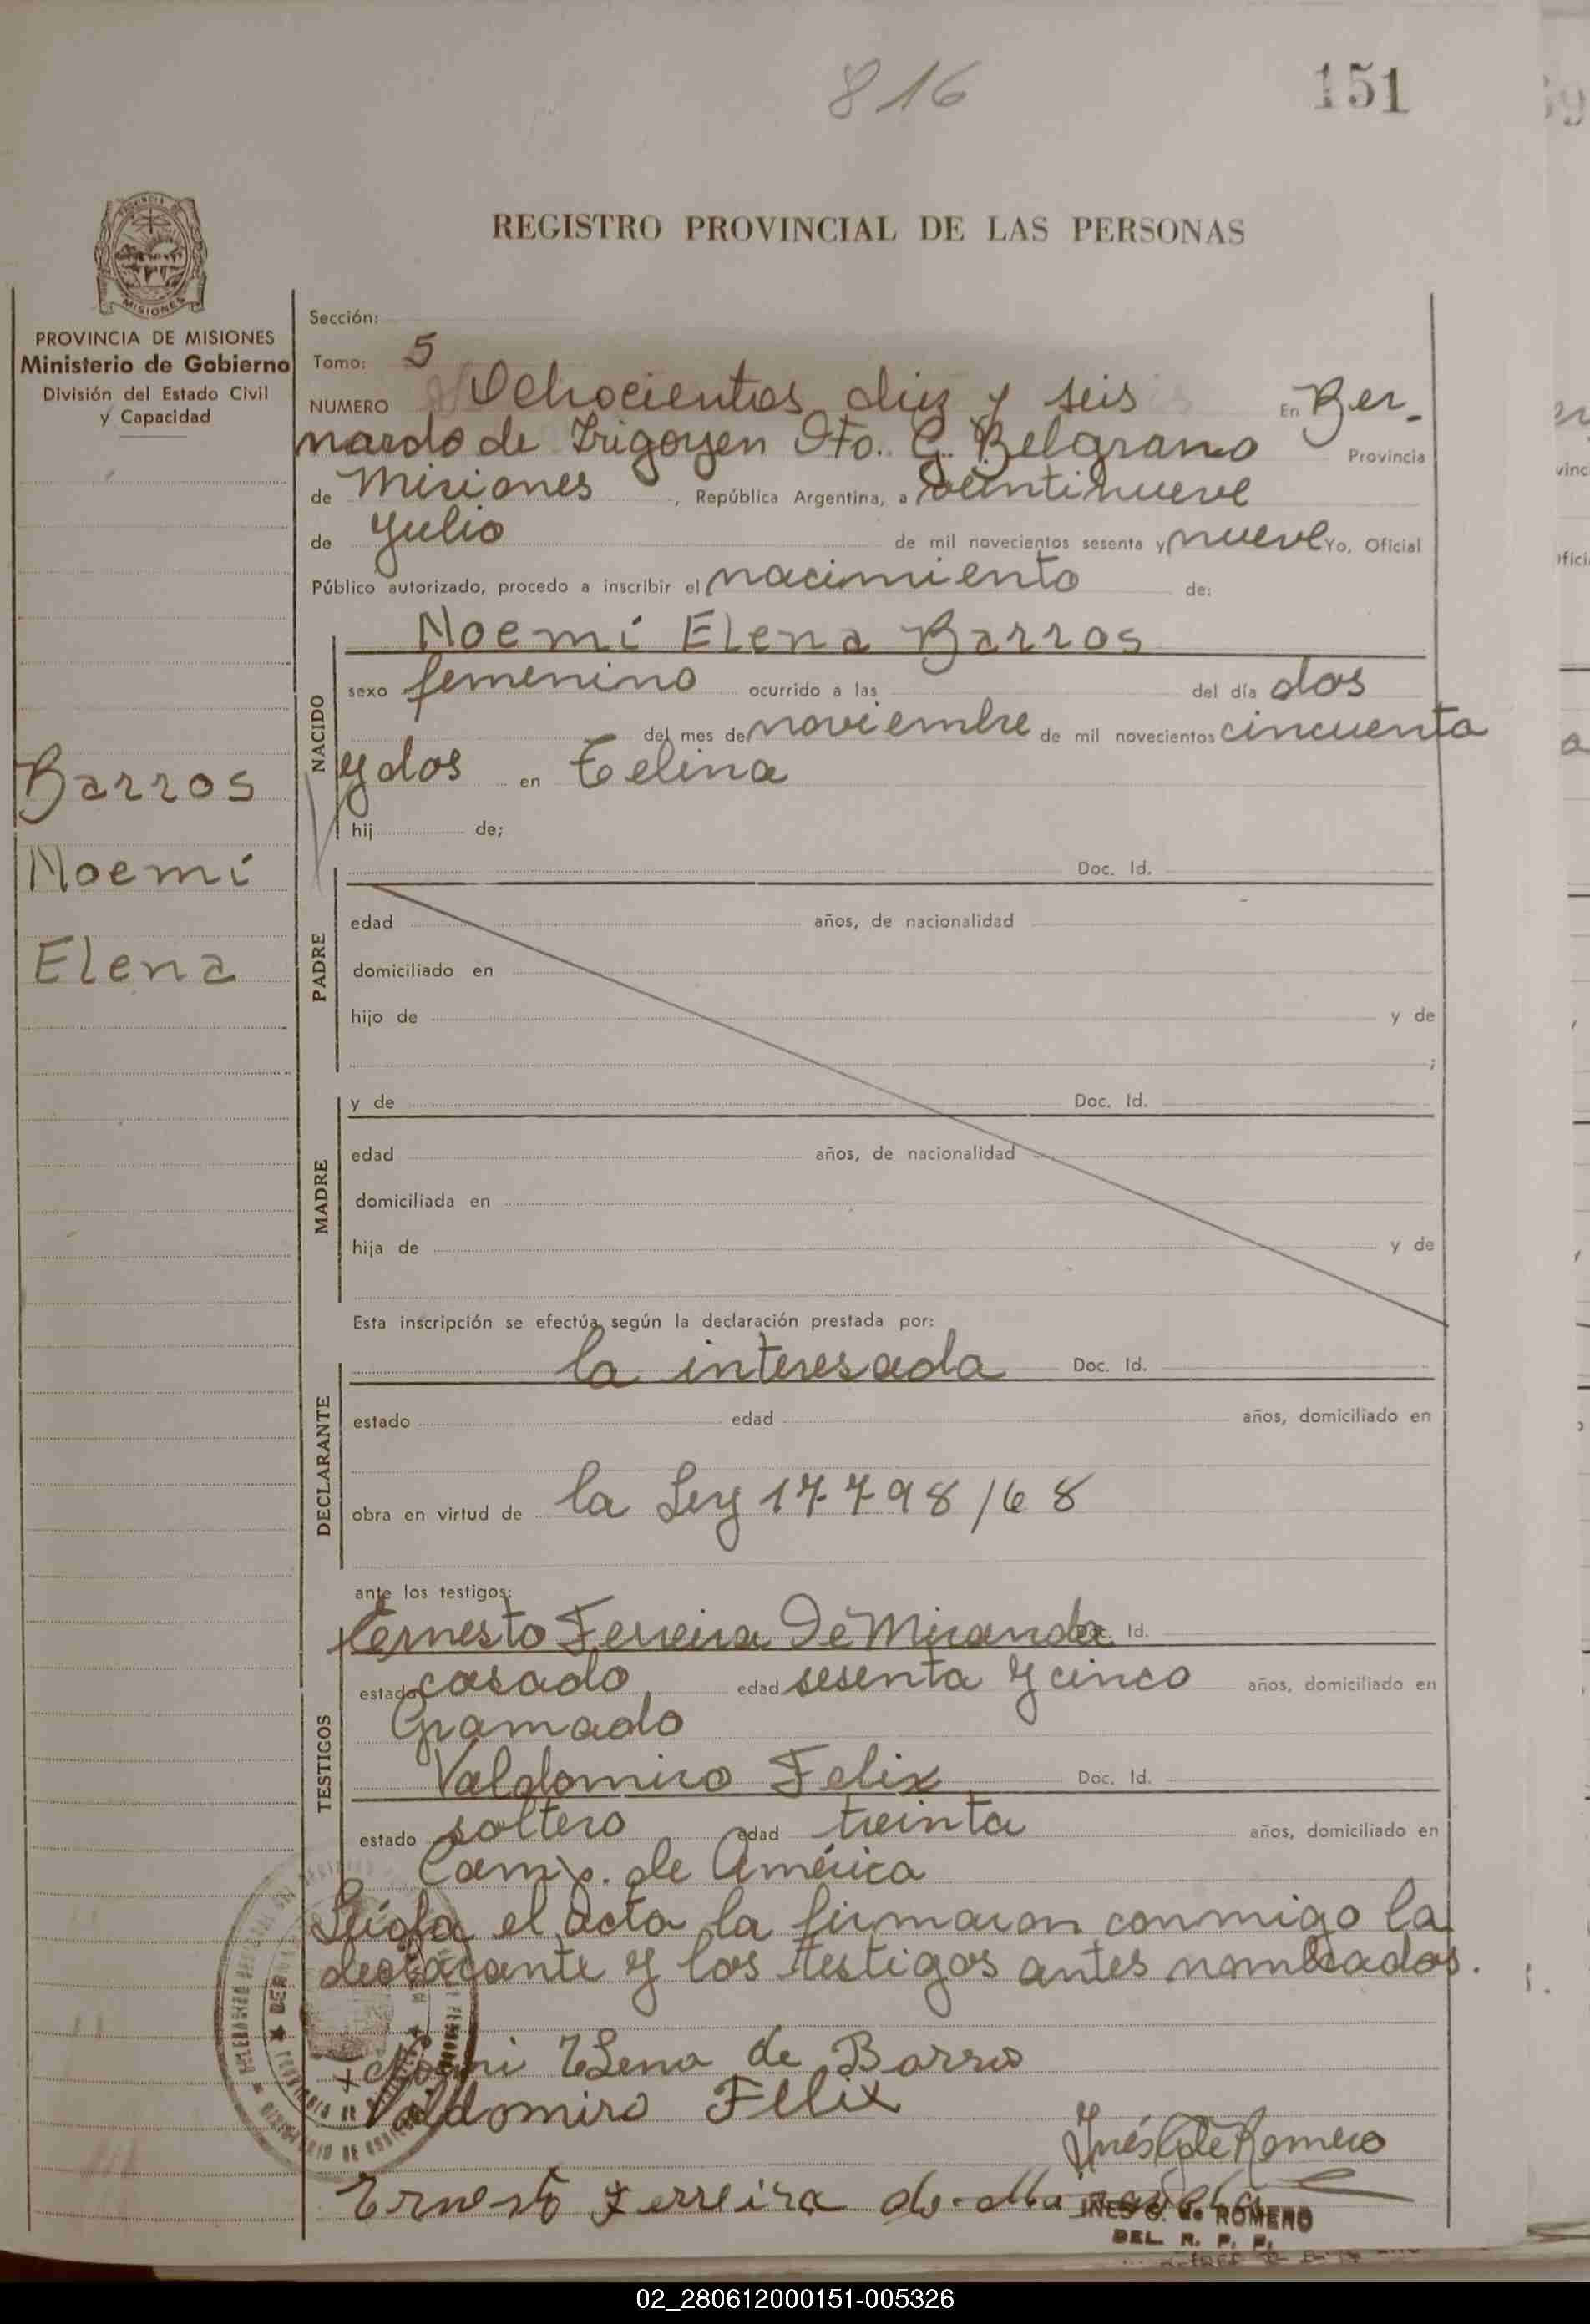 816
151
REGISTRO PROVINCIAL DE LAS PERSONAS
MISIONES
PROVINCIA DE MISIONES
Ministerio de Gobierno
División del Estado Civil
y Capacidad
Barros
Noemí
Elena
Sección:
Tomo: 5
NUMERO Ochocientos diez y seis En Ber-
nardo de Irigoyen Dto. G. Belgrano Provincia
de Misiones, República Argentina, a veintinueve
de Julio de mil novecientos sesenta y nueve Yo, Oficial
Público autorizado, procedo a inscribir el nacimiento de:
NACIDO
Noemí Elena Barros
sexo femenino ocurrido a las del día dos
del mes de noviembre de mil novecientos cincuenta
y dos en Celina
hij de;
PADRE
Doc. Id.
edad años, de nacionalidad
domiciliado en
hijo de y de
;
MADRE
y de Doc. Id.
edad años, de nacionalidad
domiciliada en
hija de y de
Esta inscripción se efectúa según la declaración prestada por:
DECLARANTE
la interesada Doc. Id.
estado edad años, domiciliado en
obra en virtud de la Ley 17798/68
ante los testigos:
TESTIGOS
Ernesto Ferreira De Miranda Id.
estado casado edad sesenta y cinco años, domiciliado en
Gramado
Valdomiro Felix Doc. Id.
estado soltero edad treinta años, domiciliado en
Camp. de América
Leída el acta la firmaron conmigo la
declarante y los testigos antes nombrados.
Noemi Elena de Barros
Valdomiro Felix
Inés G de Romero
Ernesto Ferreira de
INES G. de ROMERO
DEL. R. P. P.
02_280612000151-005326